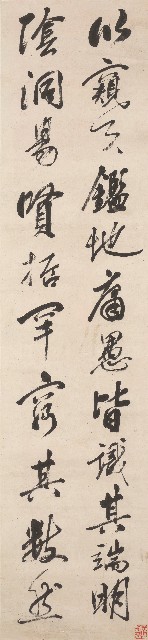 以窺天鑑地庸愚皆識其端明
陰洞昜賢哲罕窮其數然